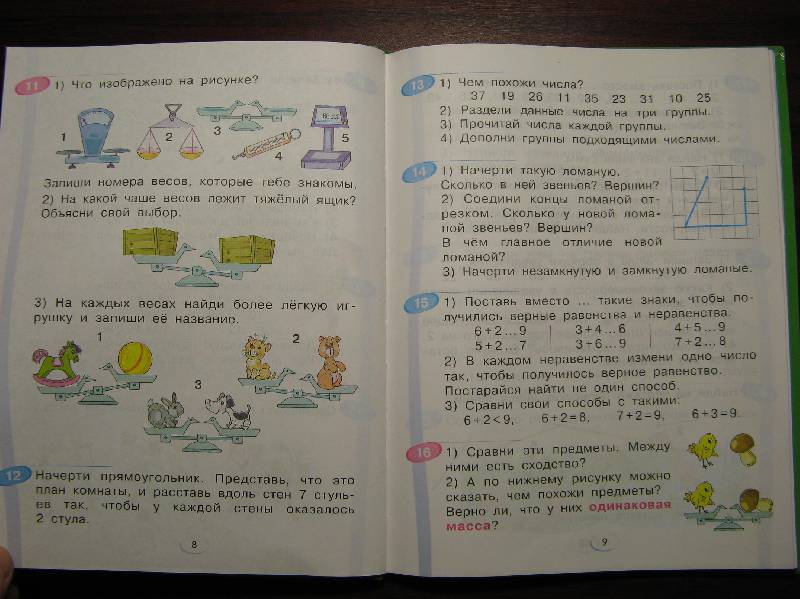 11 1) Что изображено на рисунке?
1
2
3
4
5
Запиши номера весов, которые тебе знакомы.
2) На какой чаше весов лежит тяжёлый ящик?
Объясни свой выбор.
3) На каждых весах найди более лёгкую иг-
рушку и запиши её название.
1
2
3
12 Начерти прямоугольник. Представь, что это
план комнаты, и расставь вдоль стен 7 стуль-
ев так, чтобы у каждой стены оказалось
2 стула.
8
13 1) Чем похожи числа?
37 19 26 11 35 23 31 10 25
2) Раздели данные числа на три группы.
3) Прочитай числа каждой группы.
4) Дополни группы подходящими числами.
14 1) Начерти такую ломаную.
Сколько в ней звеньев? Вершин?
2) Соедини концы ломаной от-
резком. Сколько у новой лома-
ной звеньев? Вершин?
В чём главное отличие новой
ломаной?
3) Начерти незамкнутую и замкнутую ломаные.
15 1) Поставь вместо ... такие знаки, чтобы по-
лучились верные равенства и неравенства.
6+2...9 3+4...6 4+5...9
5+2...7 3+6...9 7+2...8
2) В каждом неравенстве измени одно число
так, чтобы получилось верное равенство.
Постарайся найти не один способ.
3) Сравни свои способы с такими:
6+2<9, 6+2=8, 7+2=9, 6+3=9.
16 1) Сравни эти предметы. Между
ними есть сходство?
2) А по нижнему рисунку можно
сказать, чем похожи предметы?
Верно ли, что у них одинаковая
масса?
9